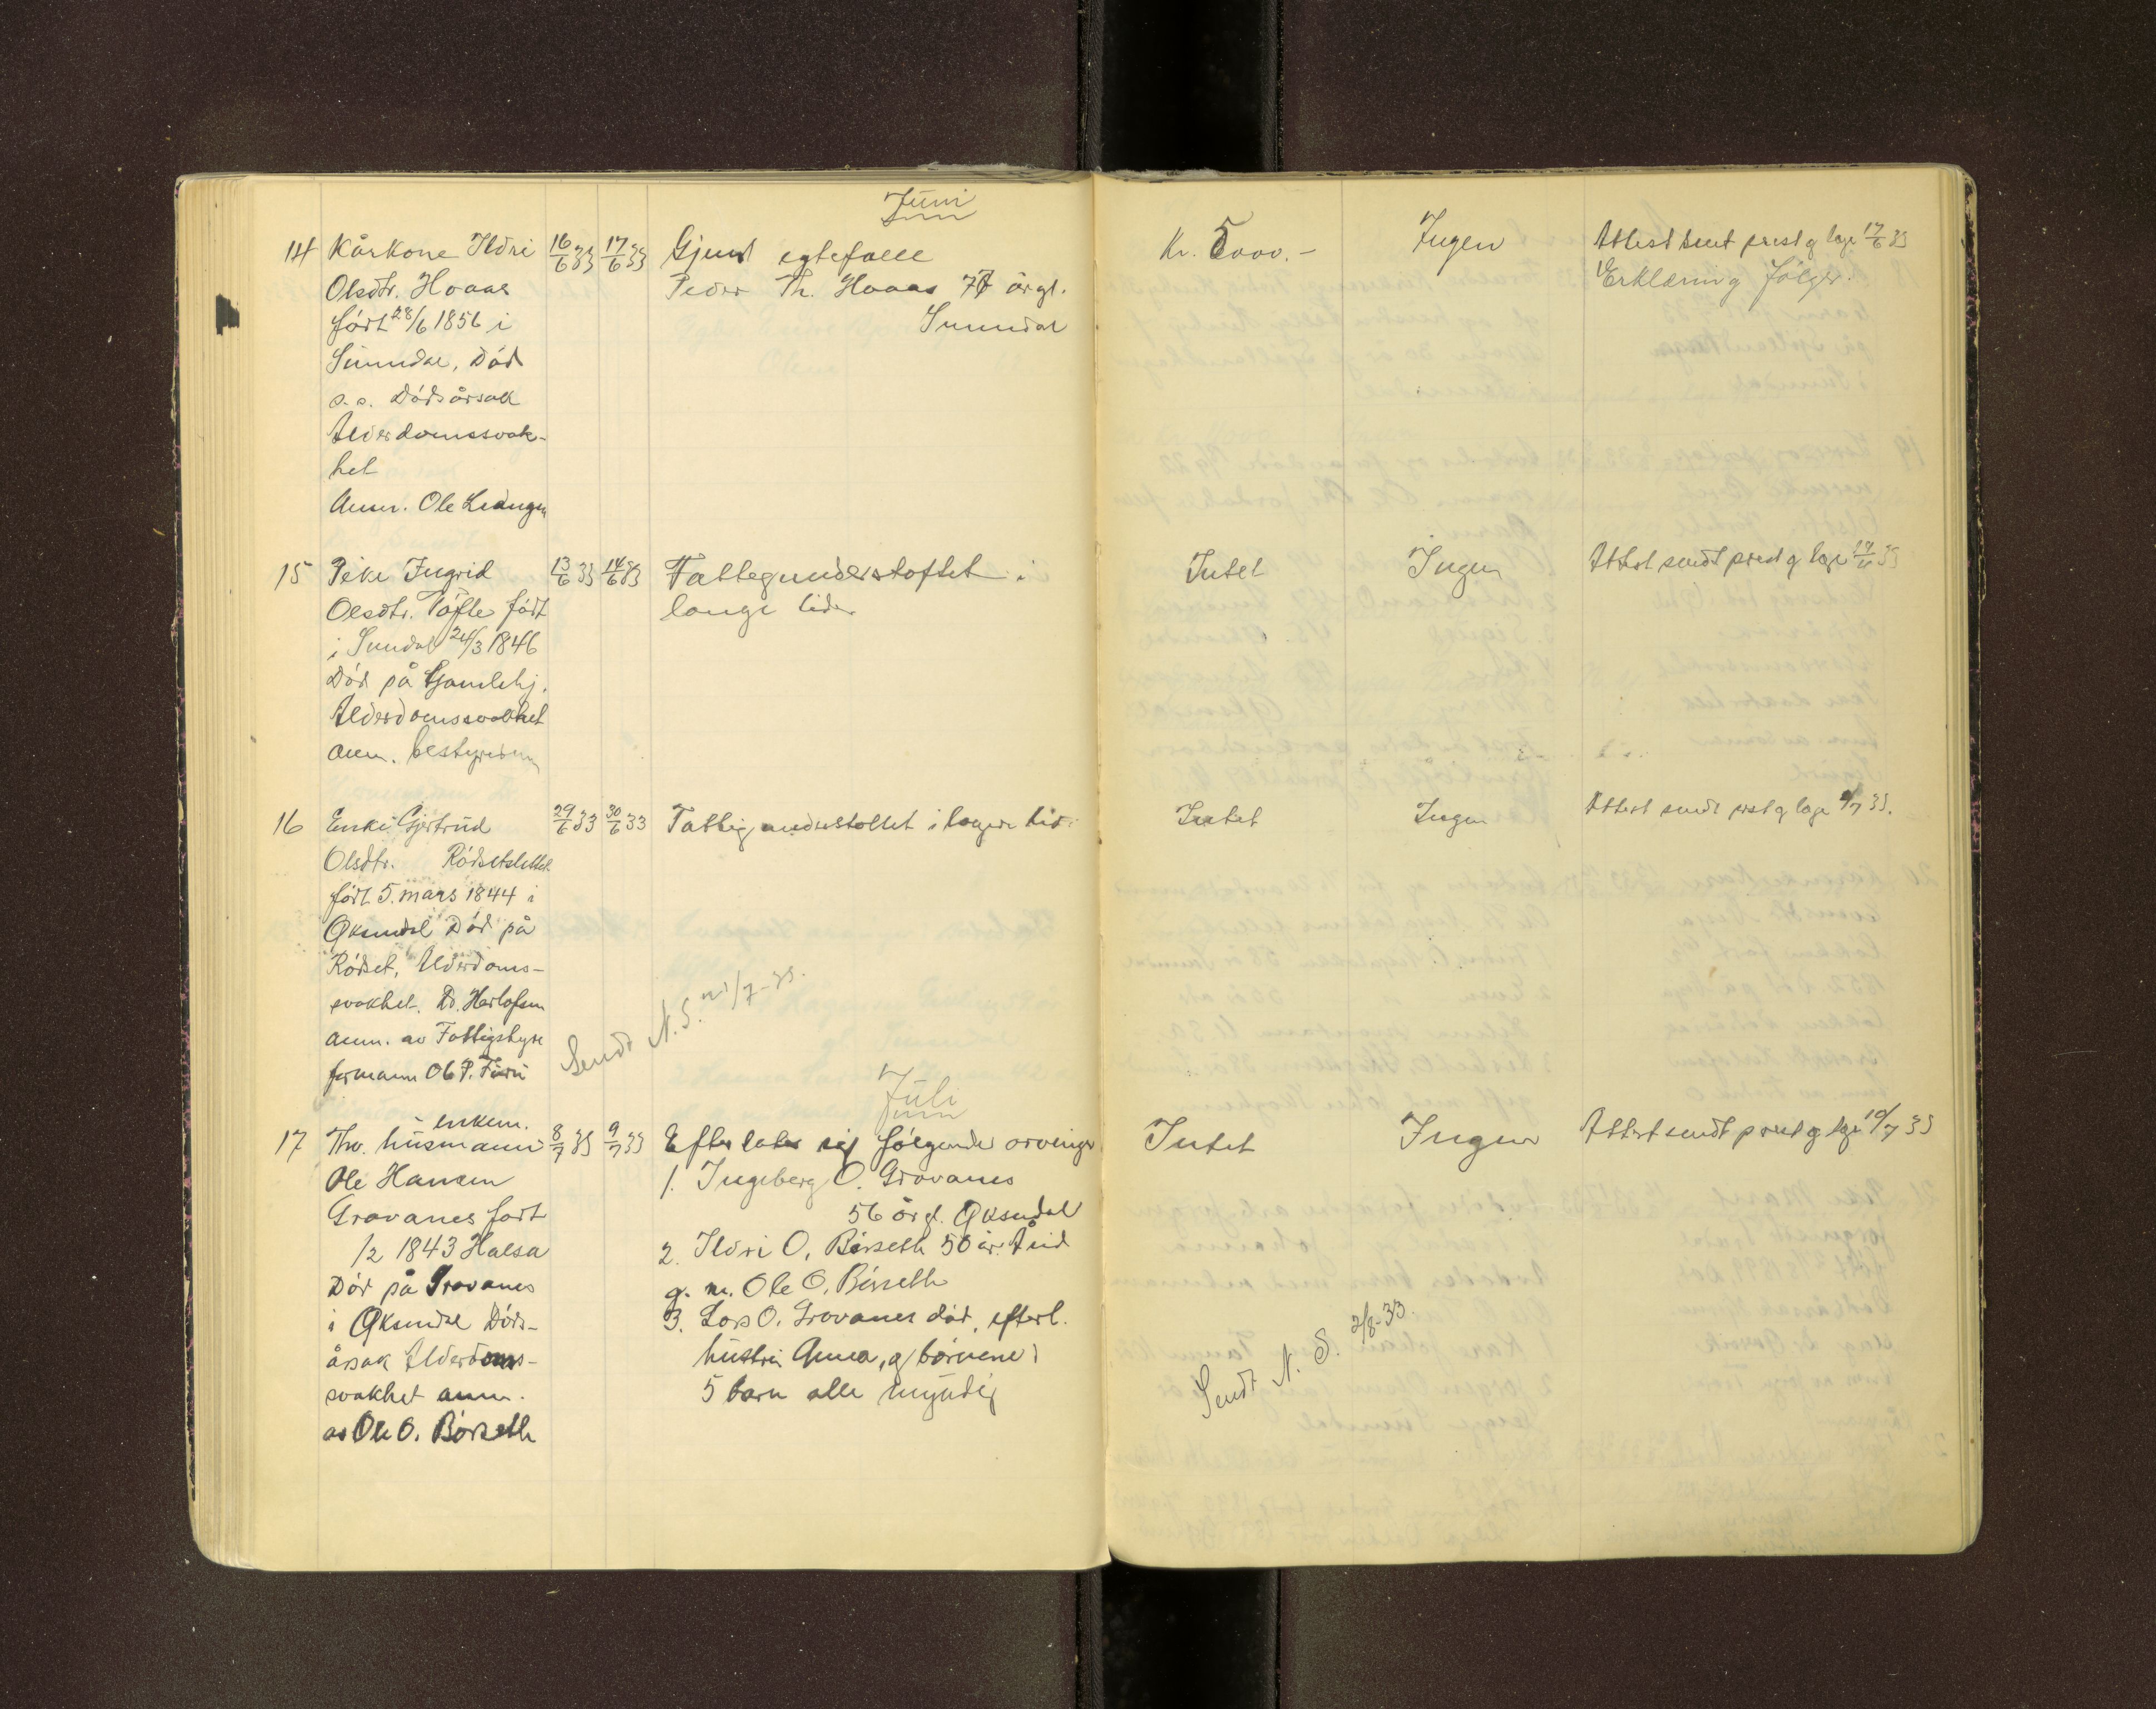 Juni
14 Kårkone Ildri 16/6 33 17/6 33 Gjenl egtefalle Kr. 5000.- Ingen Attest sent prest og lege 17/6 33
Olsdtr. Hoaas Peder Th. Hoaas 77 årgl. Erklæring følger.
født 28/6 1856 i Sunndal
Sunndal, Død
s. s. Dødsårsak
Alderdomssvak-
het
Anm. Ole
15 Peke Ingrid 13/6 33 14/6 33 Fattigunderstøttet i Intet Ingen Attest sendt prest og lege 14/6 33
Olsdtr. Tøfte født lange tider
i Sundal 24/3 1846
Død på Gamlehj.
Alderdomssvakhet
anm. bestyrerinn
16 Enke Gjertrud 29/6 33 30/6 33 Fattigunderstøttet i lengere tid. Intet Ingen Attest sendt prest og lege /7 33.
Olsdtr. Rødsetslettet
født 5. mars 1844 i
Øksendal Død på
Rødset, Alderdoms-
svakhet. Dr. Herlofsen
anm. av Fattigstyre
formann Ol P. Furu
Sendt N. S. /7-33.
Juli
enkem.
17 Fhv. husmann 8/7 33 9/7 33 Efterlater sig følgende arvinger Intet Ingen Attest sendt prest og lege 10/7 33
Ole Hansen 1. Ingeberg O. Gravanes
Gravanes født 56 årgl. Øksendal
/2 1843 Halsa 2. Ildri O. Børseth 50 år.
Død på Gravanes g. m. Ole O. Børseth
i Øksendal Døds- 3. Lars O. Gravanes død, efterl.
årsak Alderdoms- hustru Anna, og børnene
svakhet anm. 5 barn alle myndig
av Ole O. Børseth
Sendt N. S. 2/8-33.